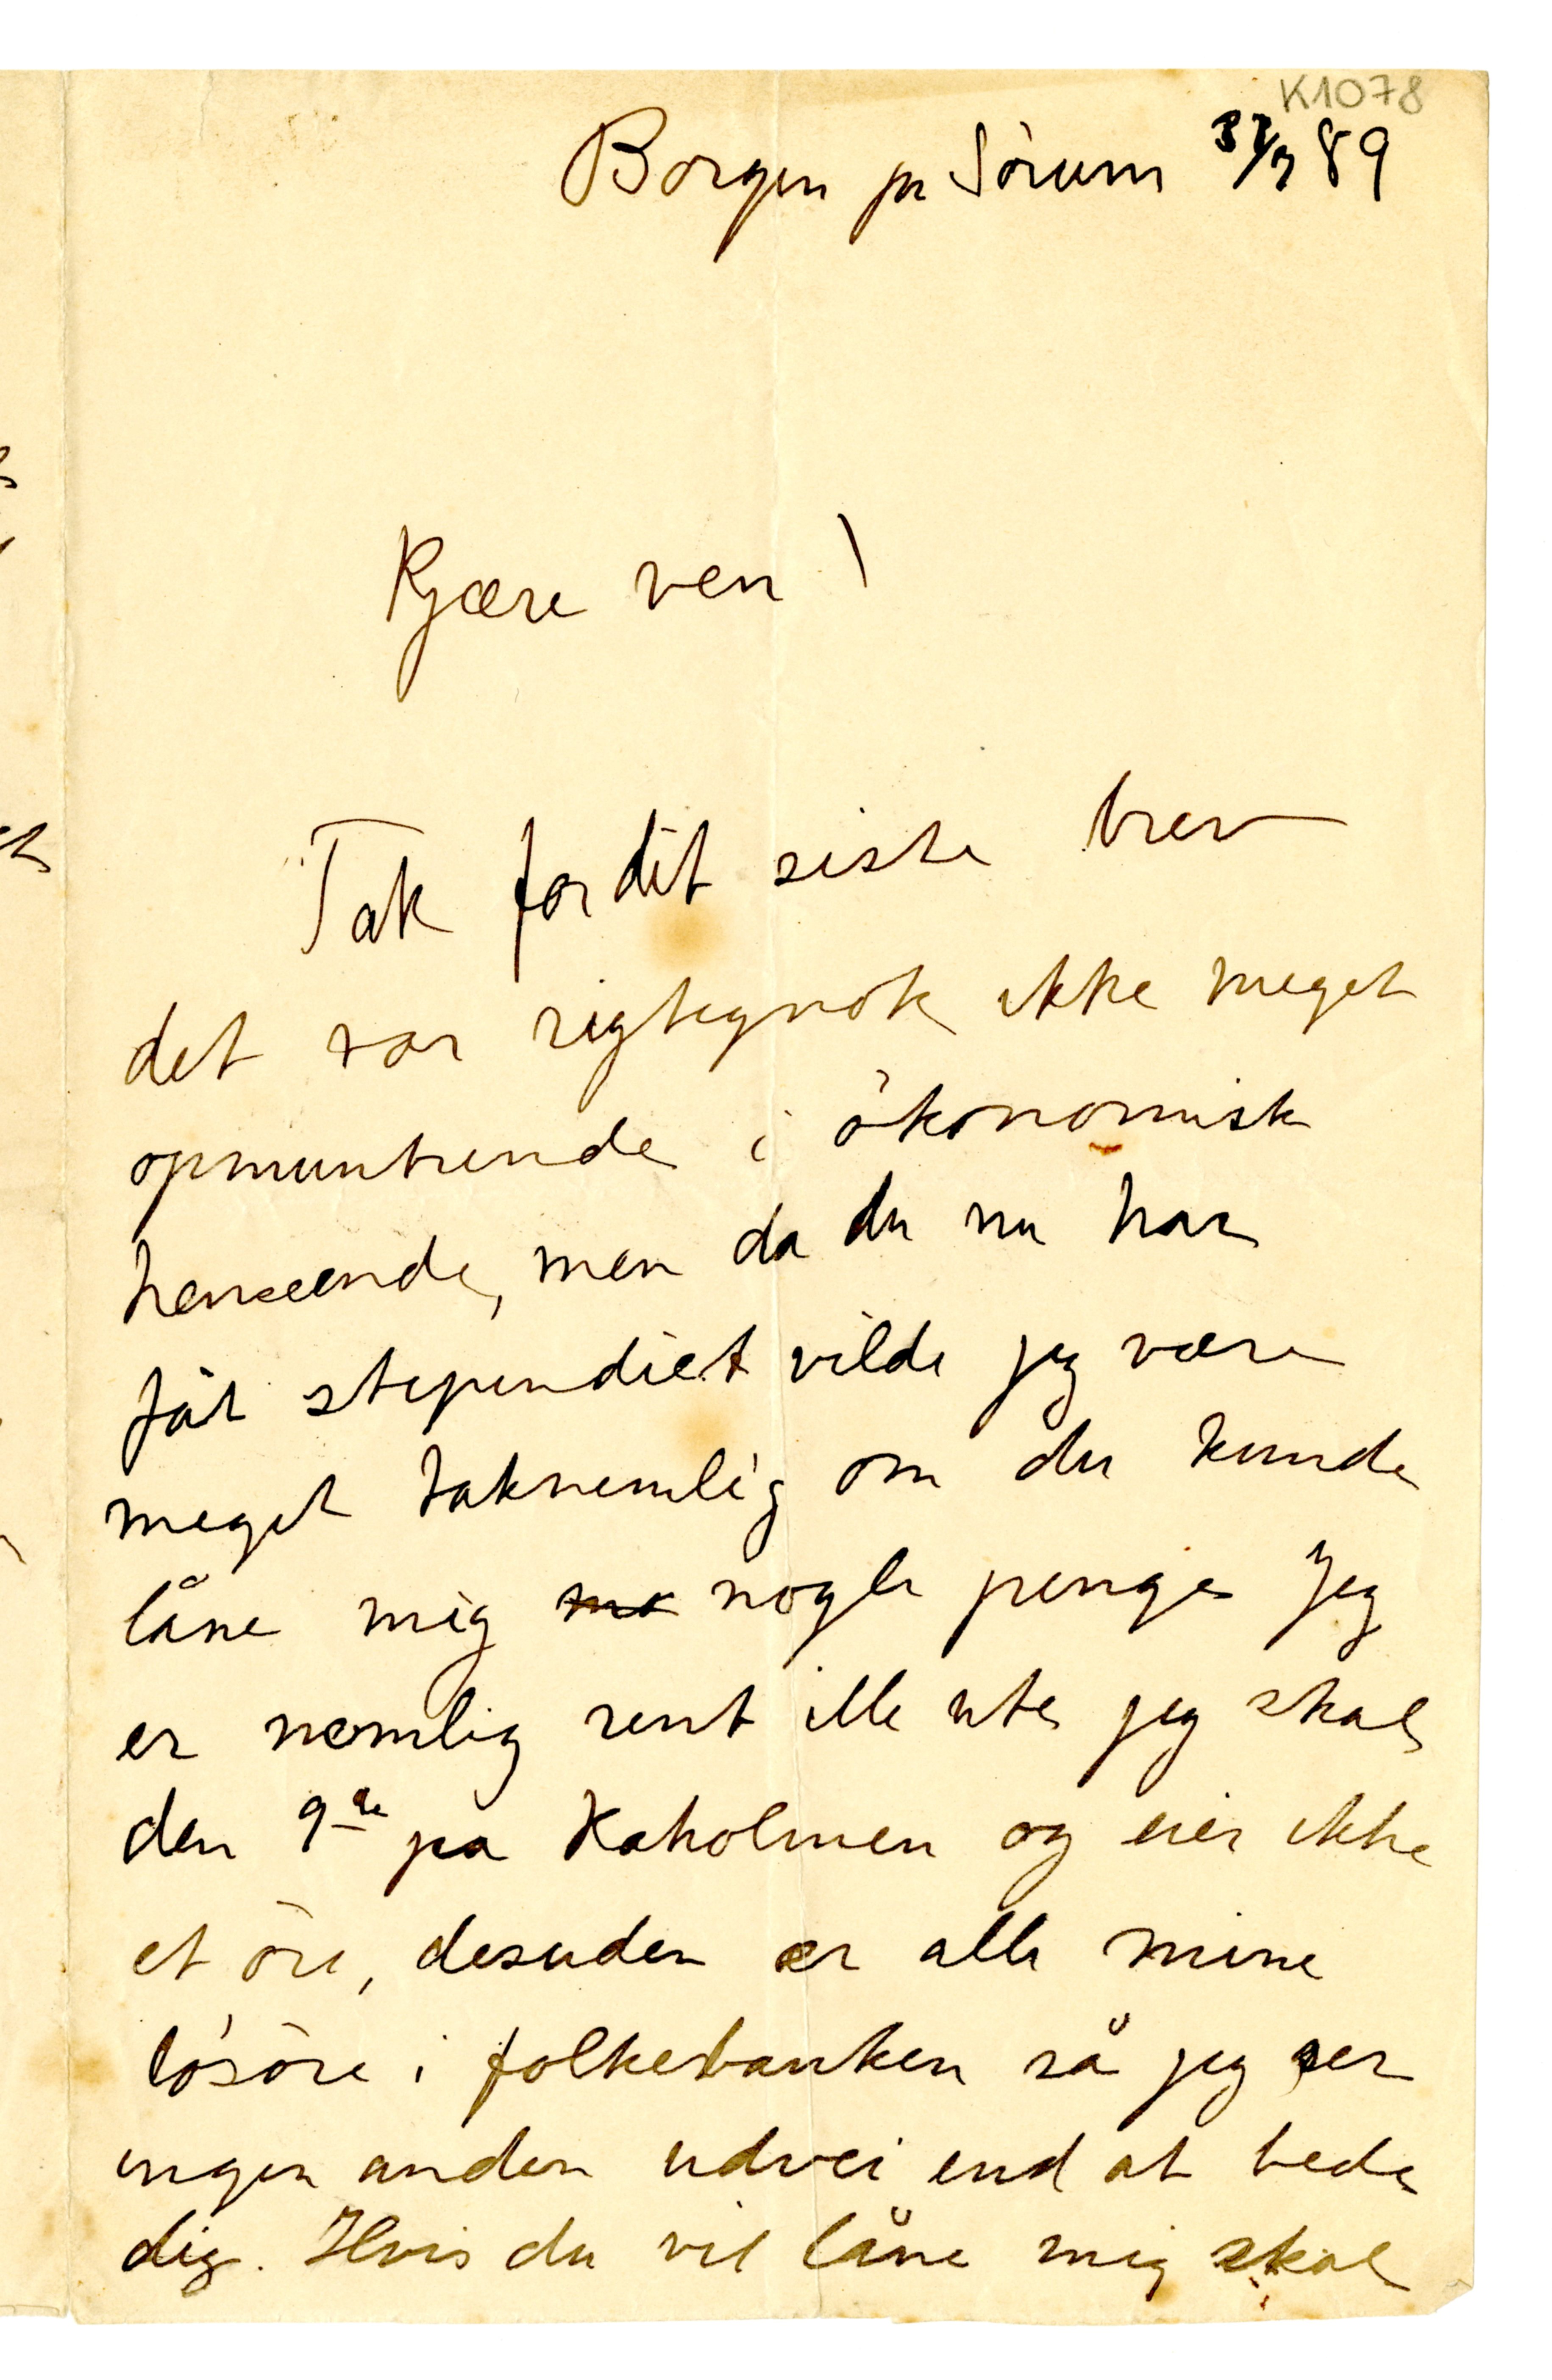 K1078
Borgen pr Sörum 31/7 89
Kjære ven!
Tak for dit siste brev
det var rigtignok ikke meget
opmuntrende i ökonomisk
henseende, men da du nu har
fåt stipendiet vilde jeg være
meget taknemlig om du kunde
låne mig nogle penge Jeg
er nemlig rent ille ute jeg skal
den 9de pa Kaholmen og eier ikke
et öre, desuden er alle mine
lösöre i folkebanken så jeg ser
ingen anden udvei end at bede
dig. Hvis du vil låne mig skal